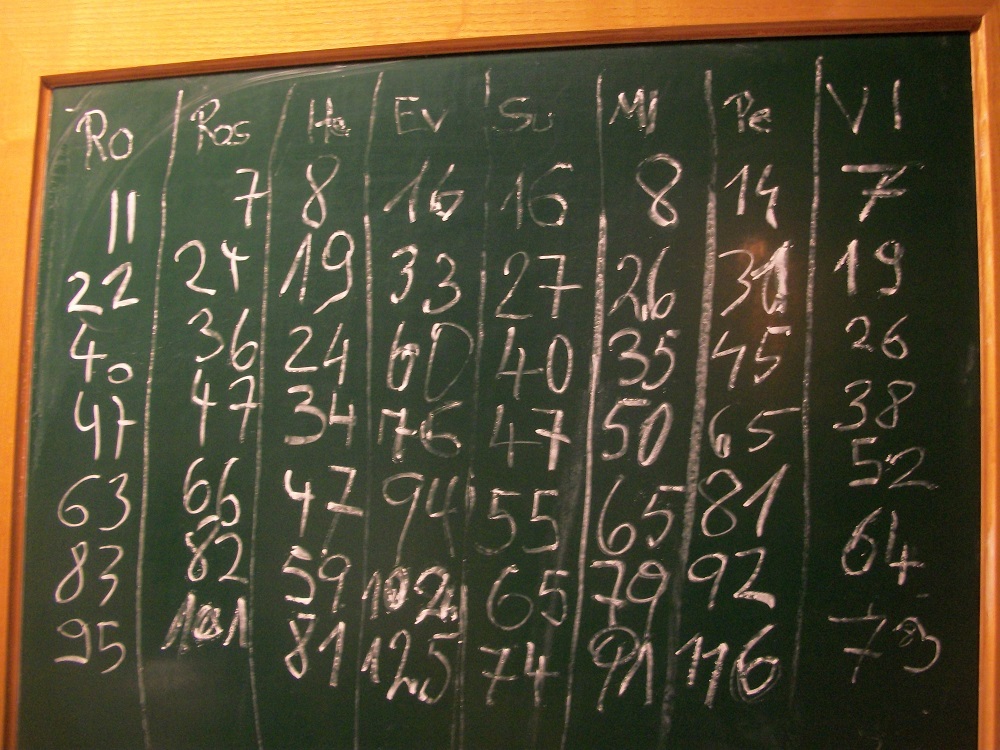 Ro Ros He Ev Su Mi Pe VI
11 7 8 16 16 8 14 7
22 24 19 33 27 26 31 19
40 36 24 60 40 35 45 26
47 47 34 76 47 50 65 38
63 66 47 94 55 65 81 52
83 82 59 102 65 79 92 64
95 101 81 125 74 91 116 78